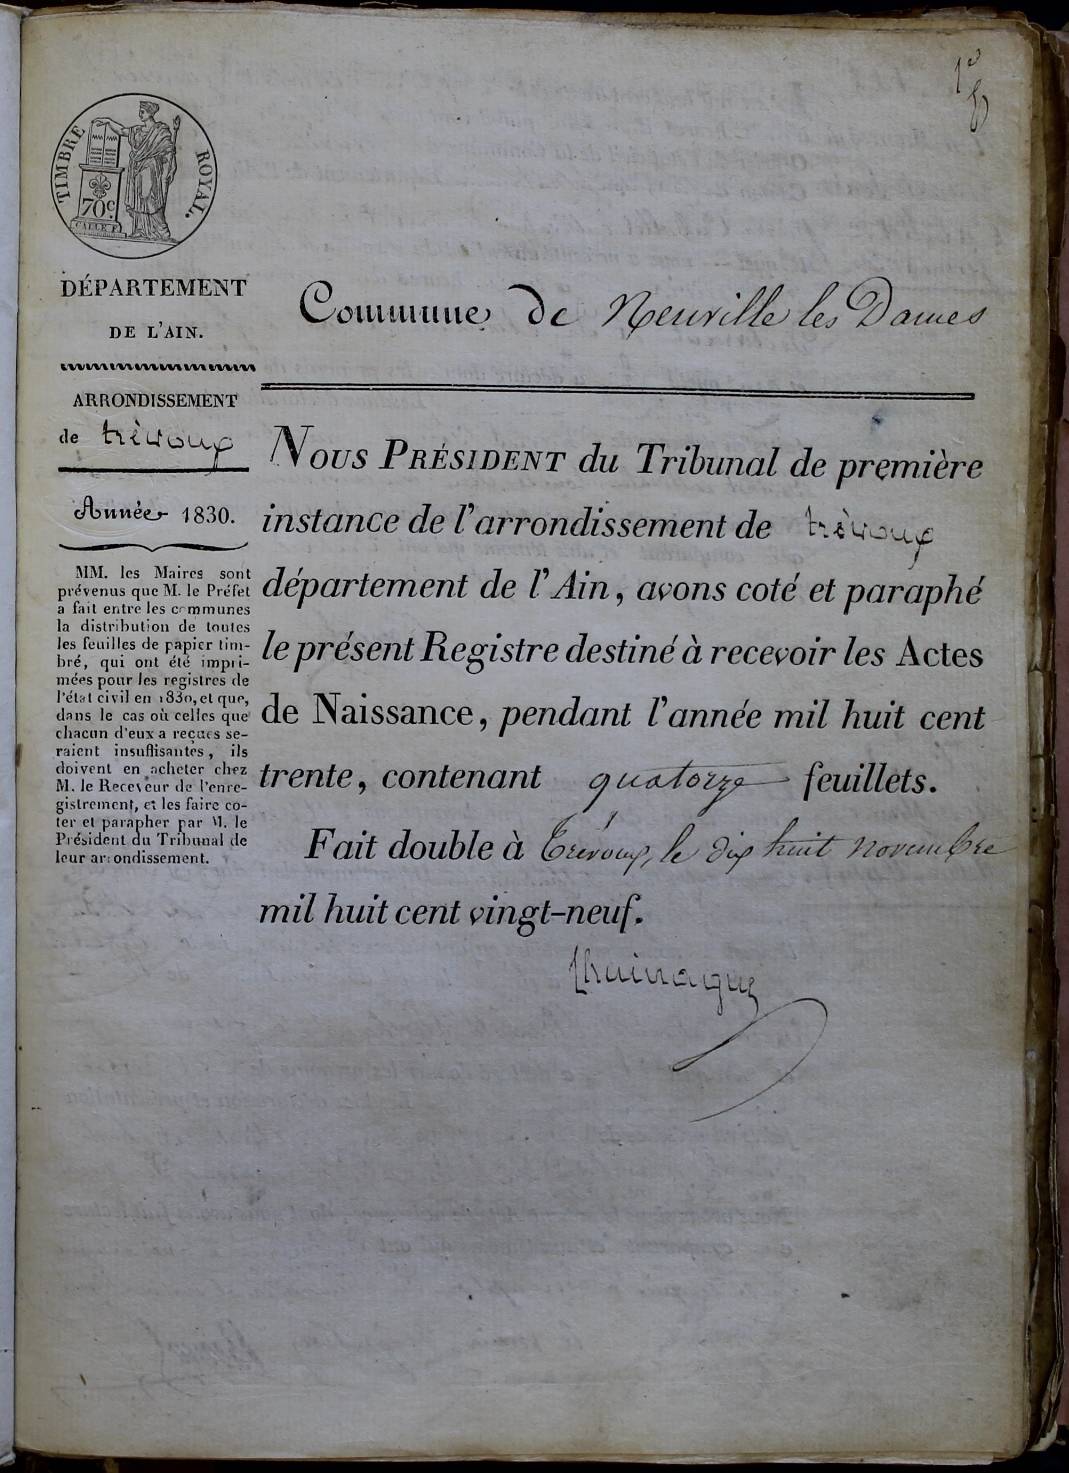 TIMBRE ROYAL.
70c
DÉPARTEMENT
DE L'AIN.
ARRONDISSEMENT
de trèvoux
Année 1830.
MM. les Maires sont
prévenus que M. le Préfet
a fait entre les communes
la distribution de toutes
les feuilles de papier tim-
bré, qui ont été impri-
mées pour les registres de
l'état civil en 1830, et que,
dans le cas où celles que
chacun d'eux a reçues se-
raient insuffisantes, ils
doivent en acheter chez
M. le Receveur de l'enre-
gistrement, et les faire co-
ter et parapher par M. le
Président du Tribunal de
leur arrondissement.
Commune de Neuville les Dames
NOUS PRÉSIDENT du Tribunal de première
instance de l'arrondissement de trèvoux
département de l'Ain, avons coté et paraphé
le présent Registre destiné à recevoir les Actes
de Naissance, pendant l'année mil huit cent
trente, contenant quatorze feuillets.
Fait double à Trévoux, le dix huit novembre
mil huit cent vingt-neuf.